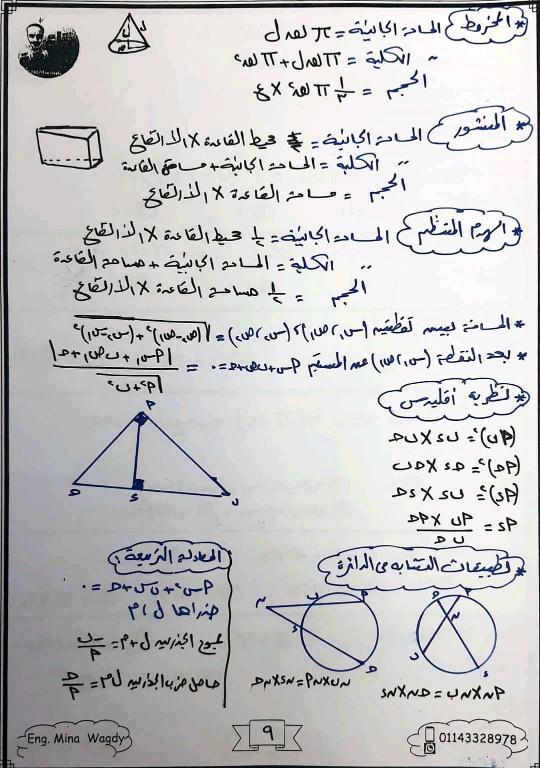 * المخروط المساحة الجانبية = π نق ل
〃 الكلية = π نق ل + π نق²
الحجم = 1/3 π نق² × ع
* المنشور المساحة الجانبية = محيط القاعدة × الارتفاع
〃 الكلية = المساحة الجانبية + مساحتى القاعدة
الحجم = مساحة القاعدة × الارتفاع
* الهرم المنتظم المساحة الجانبية = 1/2 محيط القاعدة × الارتفاع
〃 الكلية = المساحة الجانبية + مساحة القاعدة
الحجم = مساحة القاعدة × الارتفاع
* المسافة بين نقطتين (س₁, ص₁), (س₂, ص₂) = √(ص₂-ص₁)² + (س₂-س₁)²
* بعد النقطة (س₁, ص₁) عن المستقيم أس + ب ص + جـ = ٠ = |أس₁ + ب ص₁ + جـ| / √أ² + ب²
* نظرية أقليدس
(أب)² = ب د × ب جـ
(أجـ)² = جـ د × جـ ب
(أد)² = ب د × د جـ
أد = أب × أجـ / ب جـ
أ
جـ د ب
* تطبيقات التشابه فى الدائرة
ن أ × ن ب = ن جـ × ن د
ن ب × ن أ = ن د × ن جـ
المعادلة التربيعية:
أس² + ب س + جـ = ٠
جذراها ل, م
مجموع الجذرين ل + م = -ب/أ
حاصل ضرب الجذرين ل م = جـ/أ
Eng. Mina Wagdy
٩
01143328978